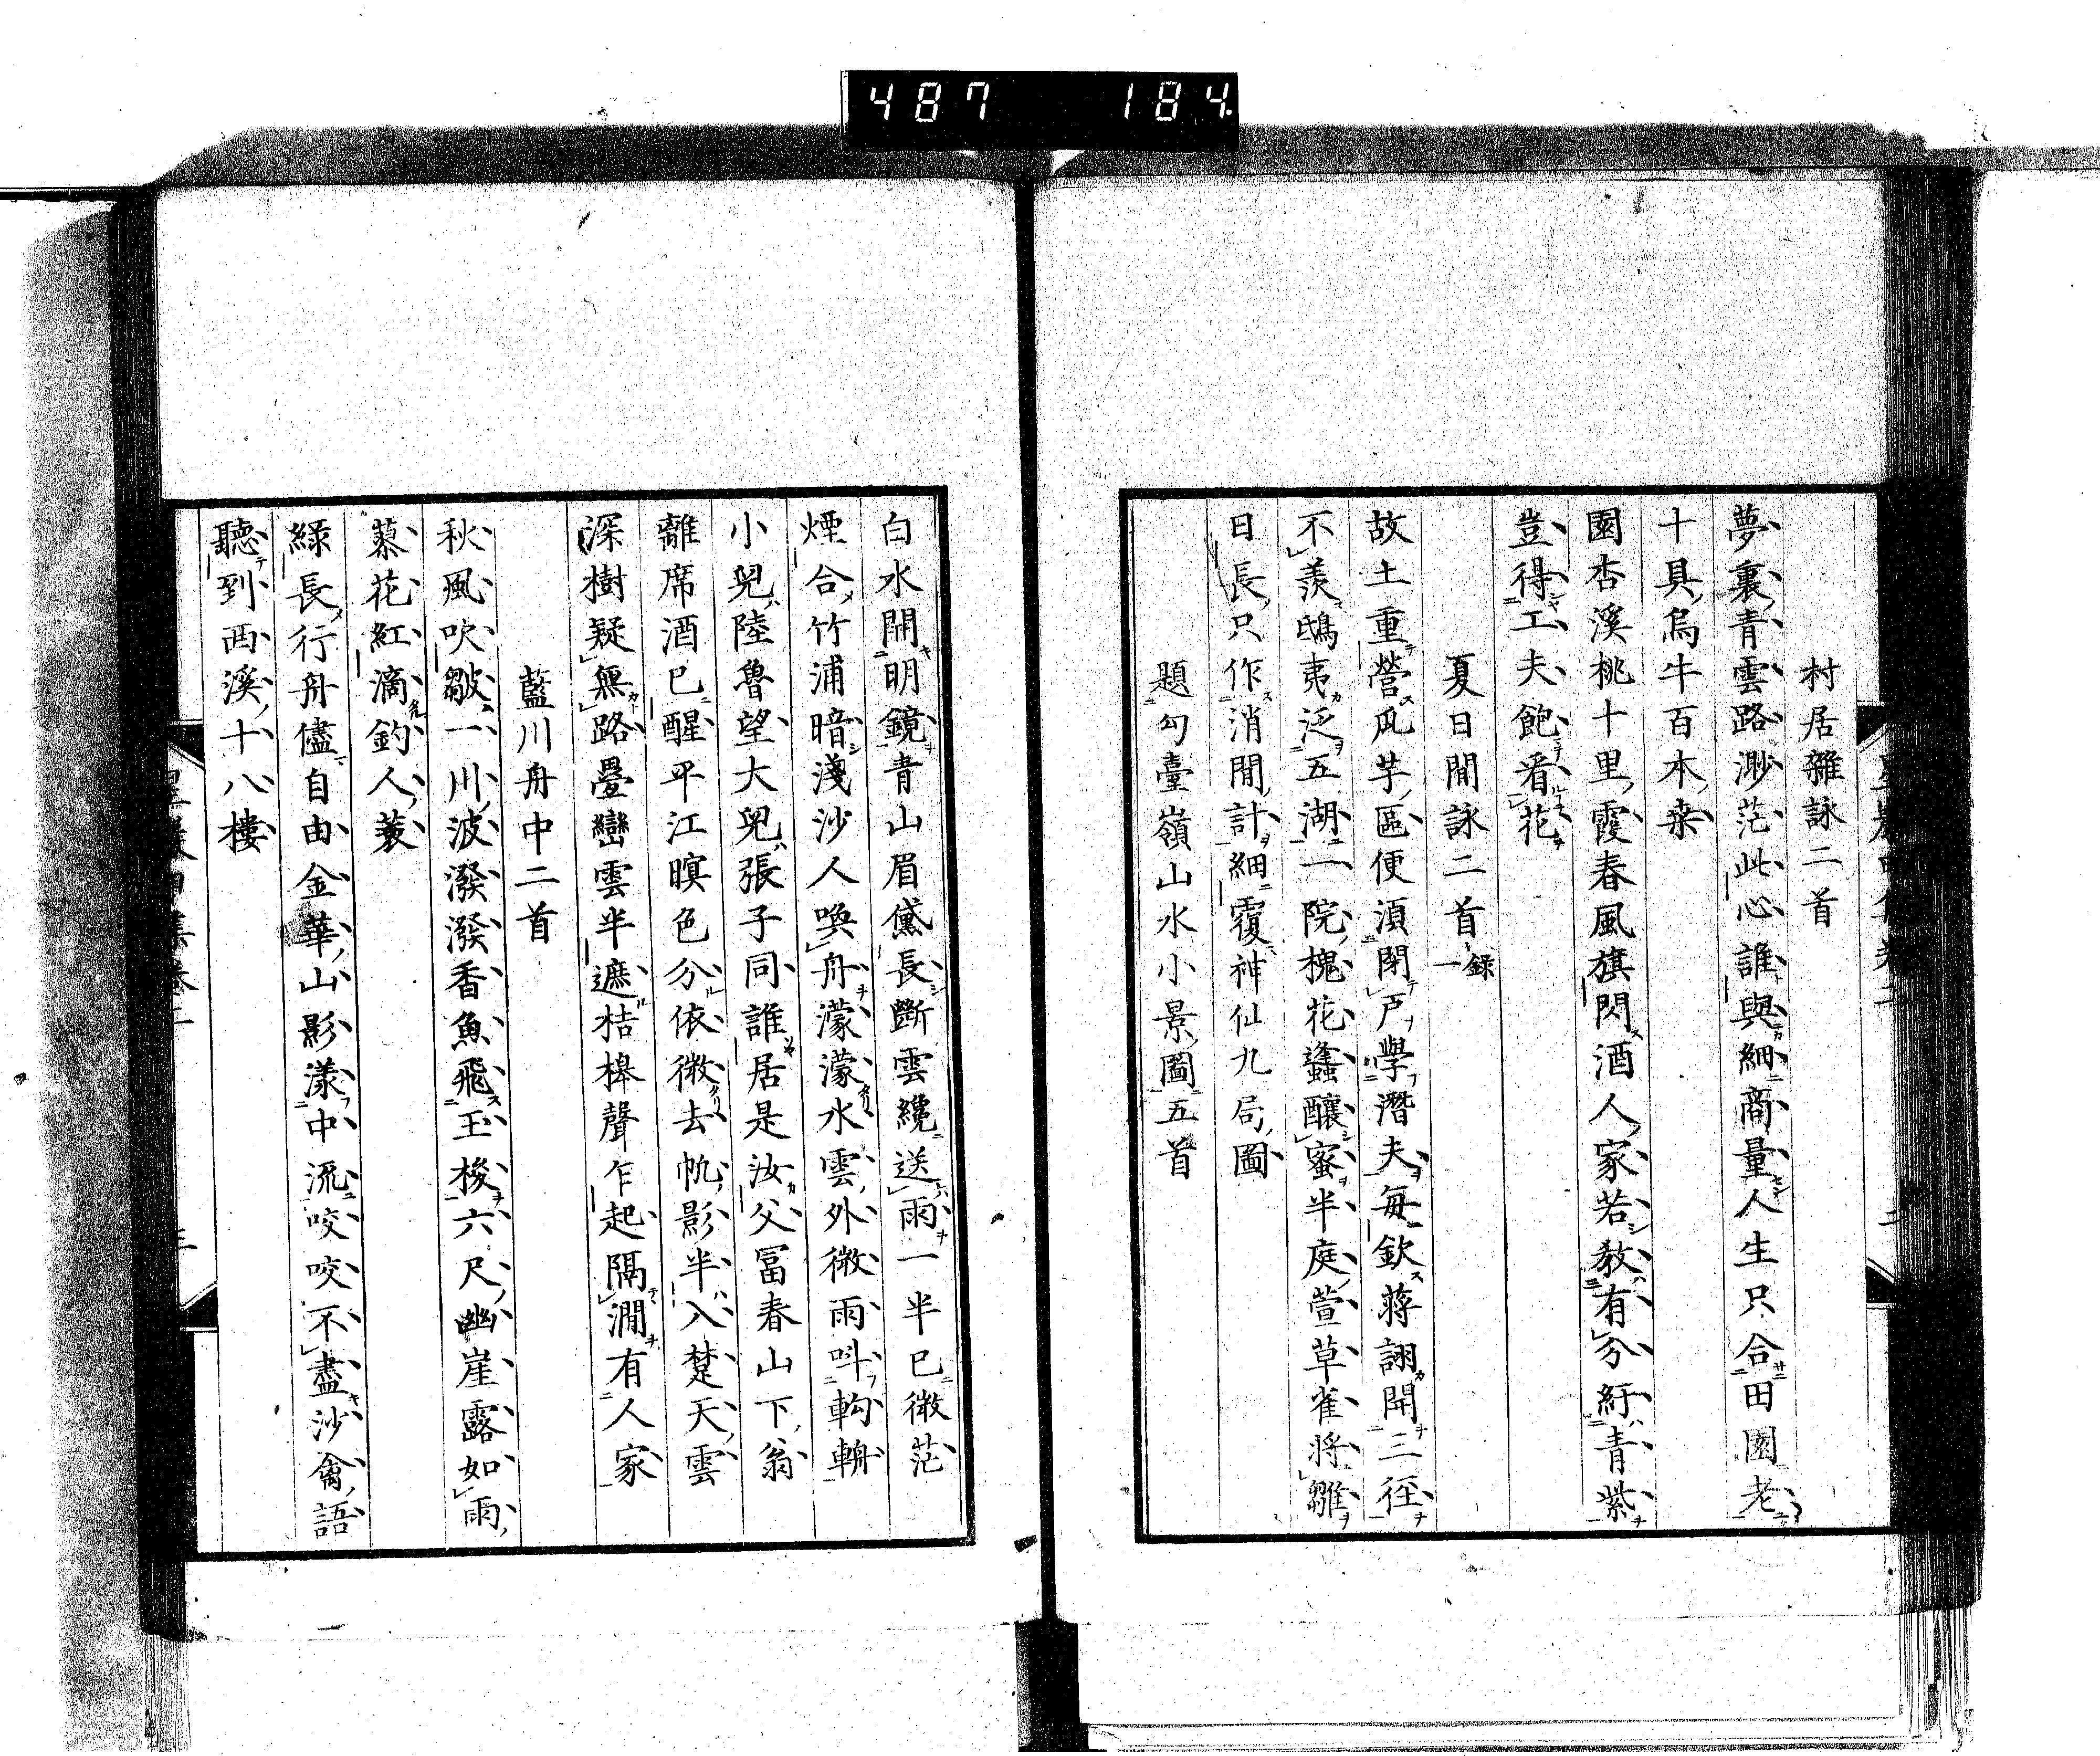 487 184
村居雜詠二首
夢裏青雲路渺茫此心誰與細商量人生只合田園老
十具烏牛百本桑
園杏溪桃十里霞春風旗閃酒人家若教有分紆青紫
豈得工夫飽看花
夏日閒詠二首錄一
故土重營瓜芋區便須閉戸學潛夫每欽蔣詡開三徑
不羨鴟夷泛五湖一院槐花蠭釀蜜半庭萱草雀將雛
日長只作消閒計細覆神仙九局圖
題勾臺嶺山水小景圖五首
白水開明鏡青山眉黛長斷雲纔送雨一半已微茫
煙合竹浦暗淺沙人喚舟濛濛水雲外微雨呌鉤輈
小兒陸魯望大兒張子同誰居是汝父冨春山下翁
離席酒已醒平江暝色分依微去帆影半入楚天雲
深樹疑無路疊巒雲半遮桔槹聲乍起隔澗有人家
藍川舟中二首
秋風吹皺一川波潑潑香魚飛玉梭六尺幽崖露如雨
蓼花紅滴釣人蓑
綠長行舟儘自由金華山影漾中流咬咬不盡沙禽語
聽到西溪十八樓